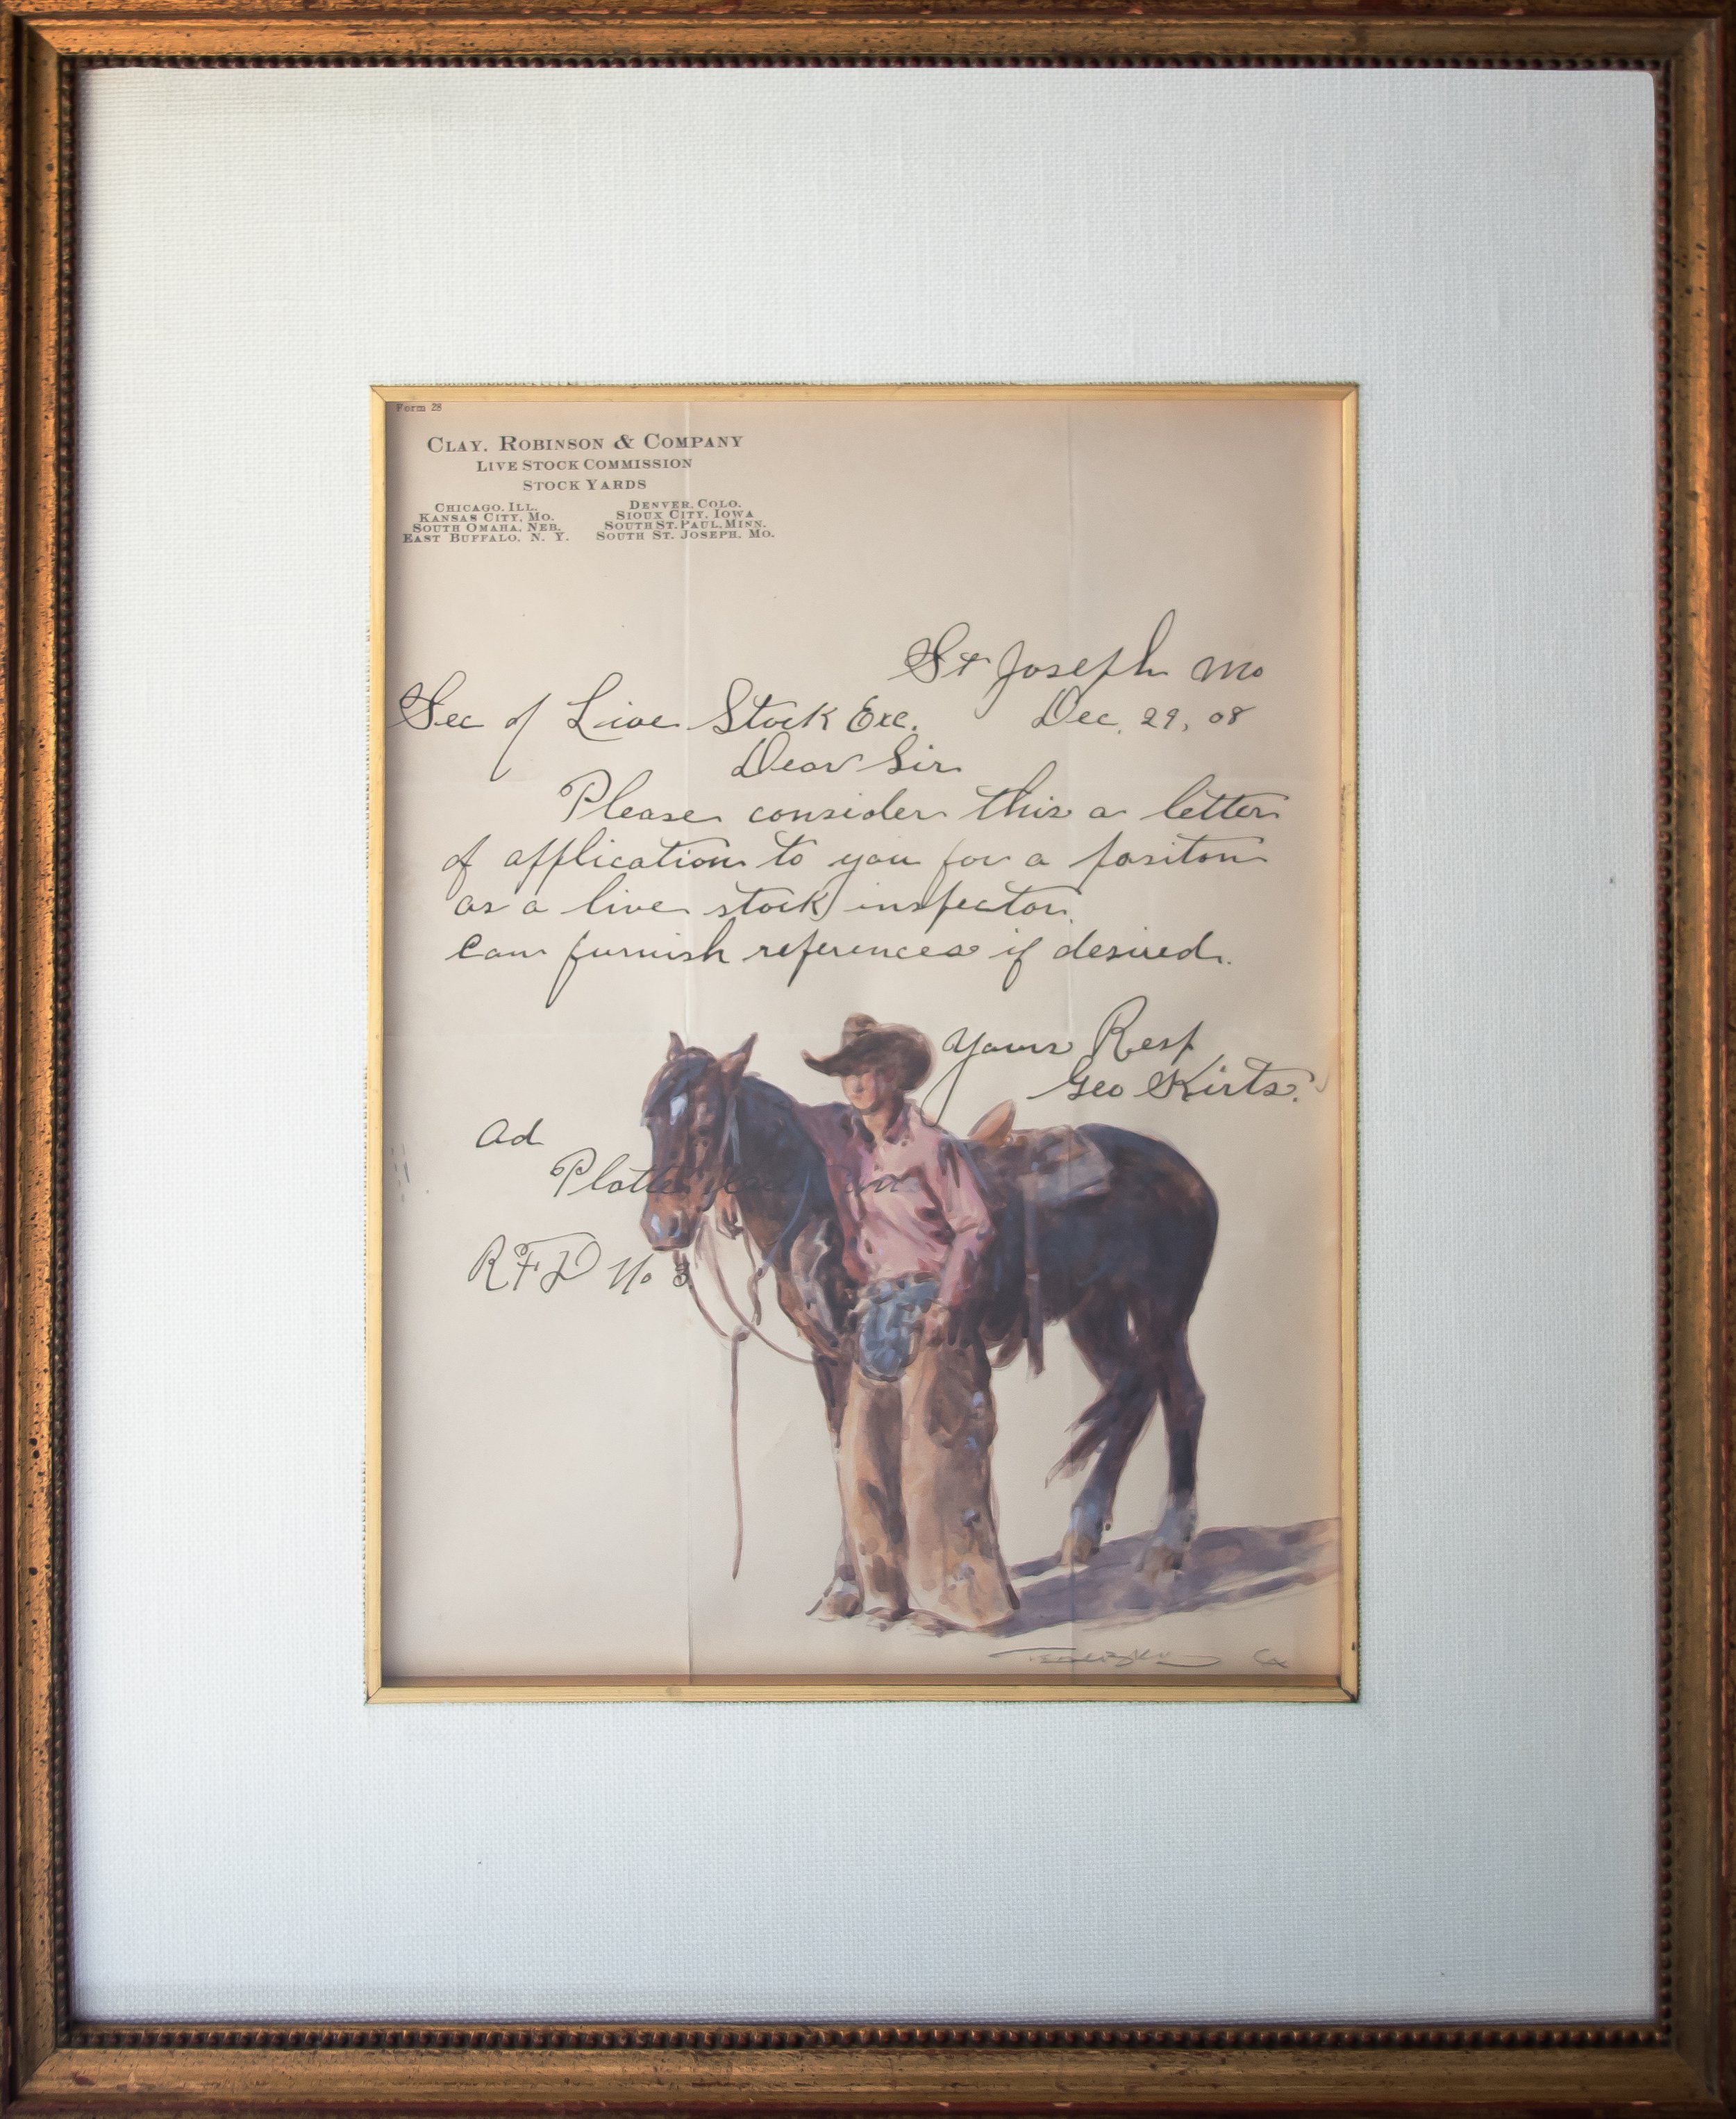 Form 28
CLAY, ROBINSON & COMPANY
LIVE STOCK COMMISSION
STOCK YARDS
CHICAGO, ILL. DENVER, COLO.
KANSAS CITY, MO. SIOUX CITY, IOWA
SOUTH OMAHA, NEB. SOUTH ST. PAUL, MINN.
EAST BUFFALO, N. Y. SOUTH ST. JOSEPH, MO.
St Joseph Mo
Sec of Live Stock Exc. Dec. 29, 08
Dear Sir
Please consider this a letter
of application to you for a positon
as a live stock inspector.
Can furnish references if desired.
Yours Resp
Geo Kirts.
Ad
Platte
RFD No 3
CA